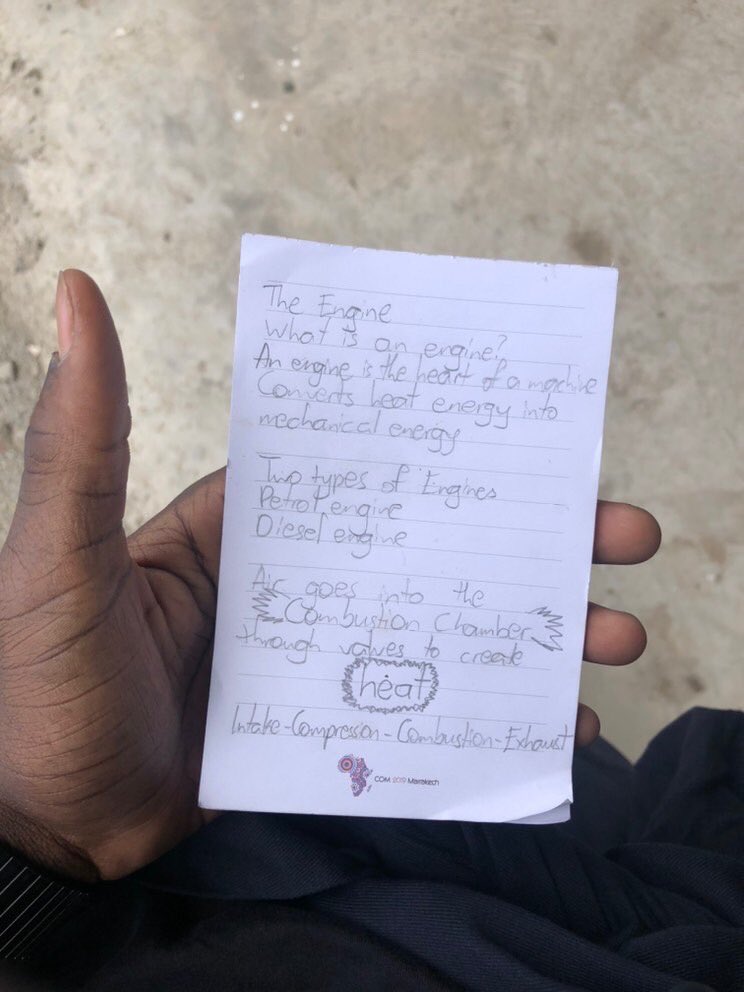 The Engine
What is an engine?
An engine is the heart of a machine
Converts heat energy into
mechanical energy
Two types of Engines
Petrol engine
Diesel engine
Air goes into the
Combustion Chamber
through valves to create
heat
Intake-Compression-Combustion-Exhaust
COM 2019 Marrakech